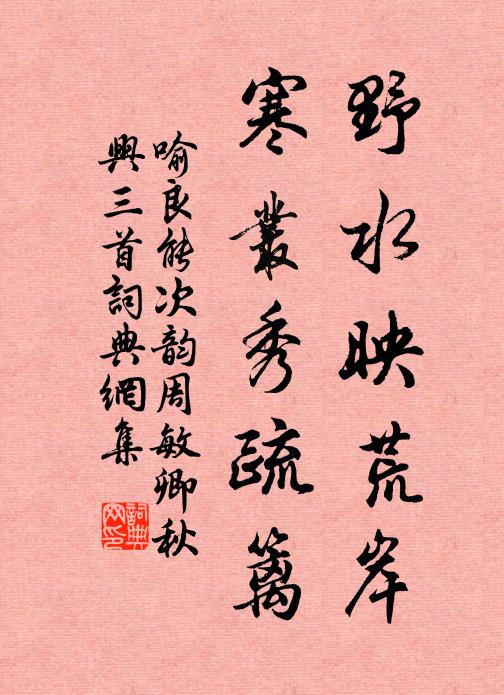 野水映荒岸
寒叢秀疏籬
喻良能次韵周敏卿秋
興三首詞典網集
詞典
网印